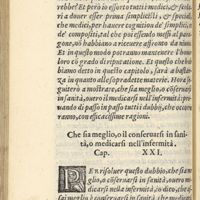 rebbe? Et però io essorto tutti i medici, & spetia
ria douer esser prima simplicisti; & spetial
che medici, per hauere cognition de' simplici,
de' compositi, tal che poi essendo messi al para
gone, nõ habbiano a riceuere affronto da niuno.
Et in questo modo potranno mantenere l'honor
loro cõ grado di riputatione. Et questo che hab
biamo detto in questo capitolo, sarà a bastanza
quanto in alle sopradette materie. Hora seguiterò
a mostrare, che sia meglio, o cõseruarsi
in sanità, ouero il medicarsi nell'infermità, andando
di passo in passo tutti i dubbij, che occorreranno,
con efficacissime ragioni.
Che sia meglio, o il conseruarsi in sani
tà, o medicarsi nell'infermità.
Cap. XXI.
PEr risoluer questo dubbio, che sia
meglio, o cõseruarsi in sanità, ouero
medicarsi nella infermità, io dico, che
sia meglio è conseruarsi in sanità,